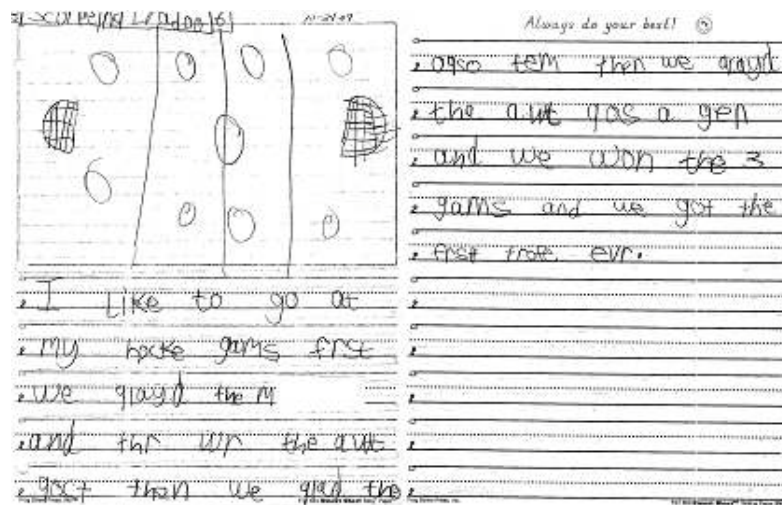 I Like to go at
my hocke gams frst
we qlayd the M
and thr wr the autt
then we qlad the
Always do your best!
aqso tem then we qlayd
the autt qos a gen
and we won the 3
gams and we got the
frst trofe evr.